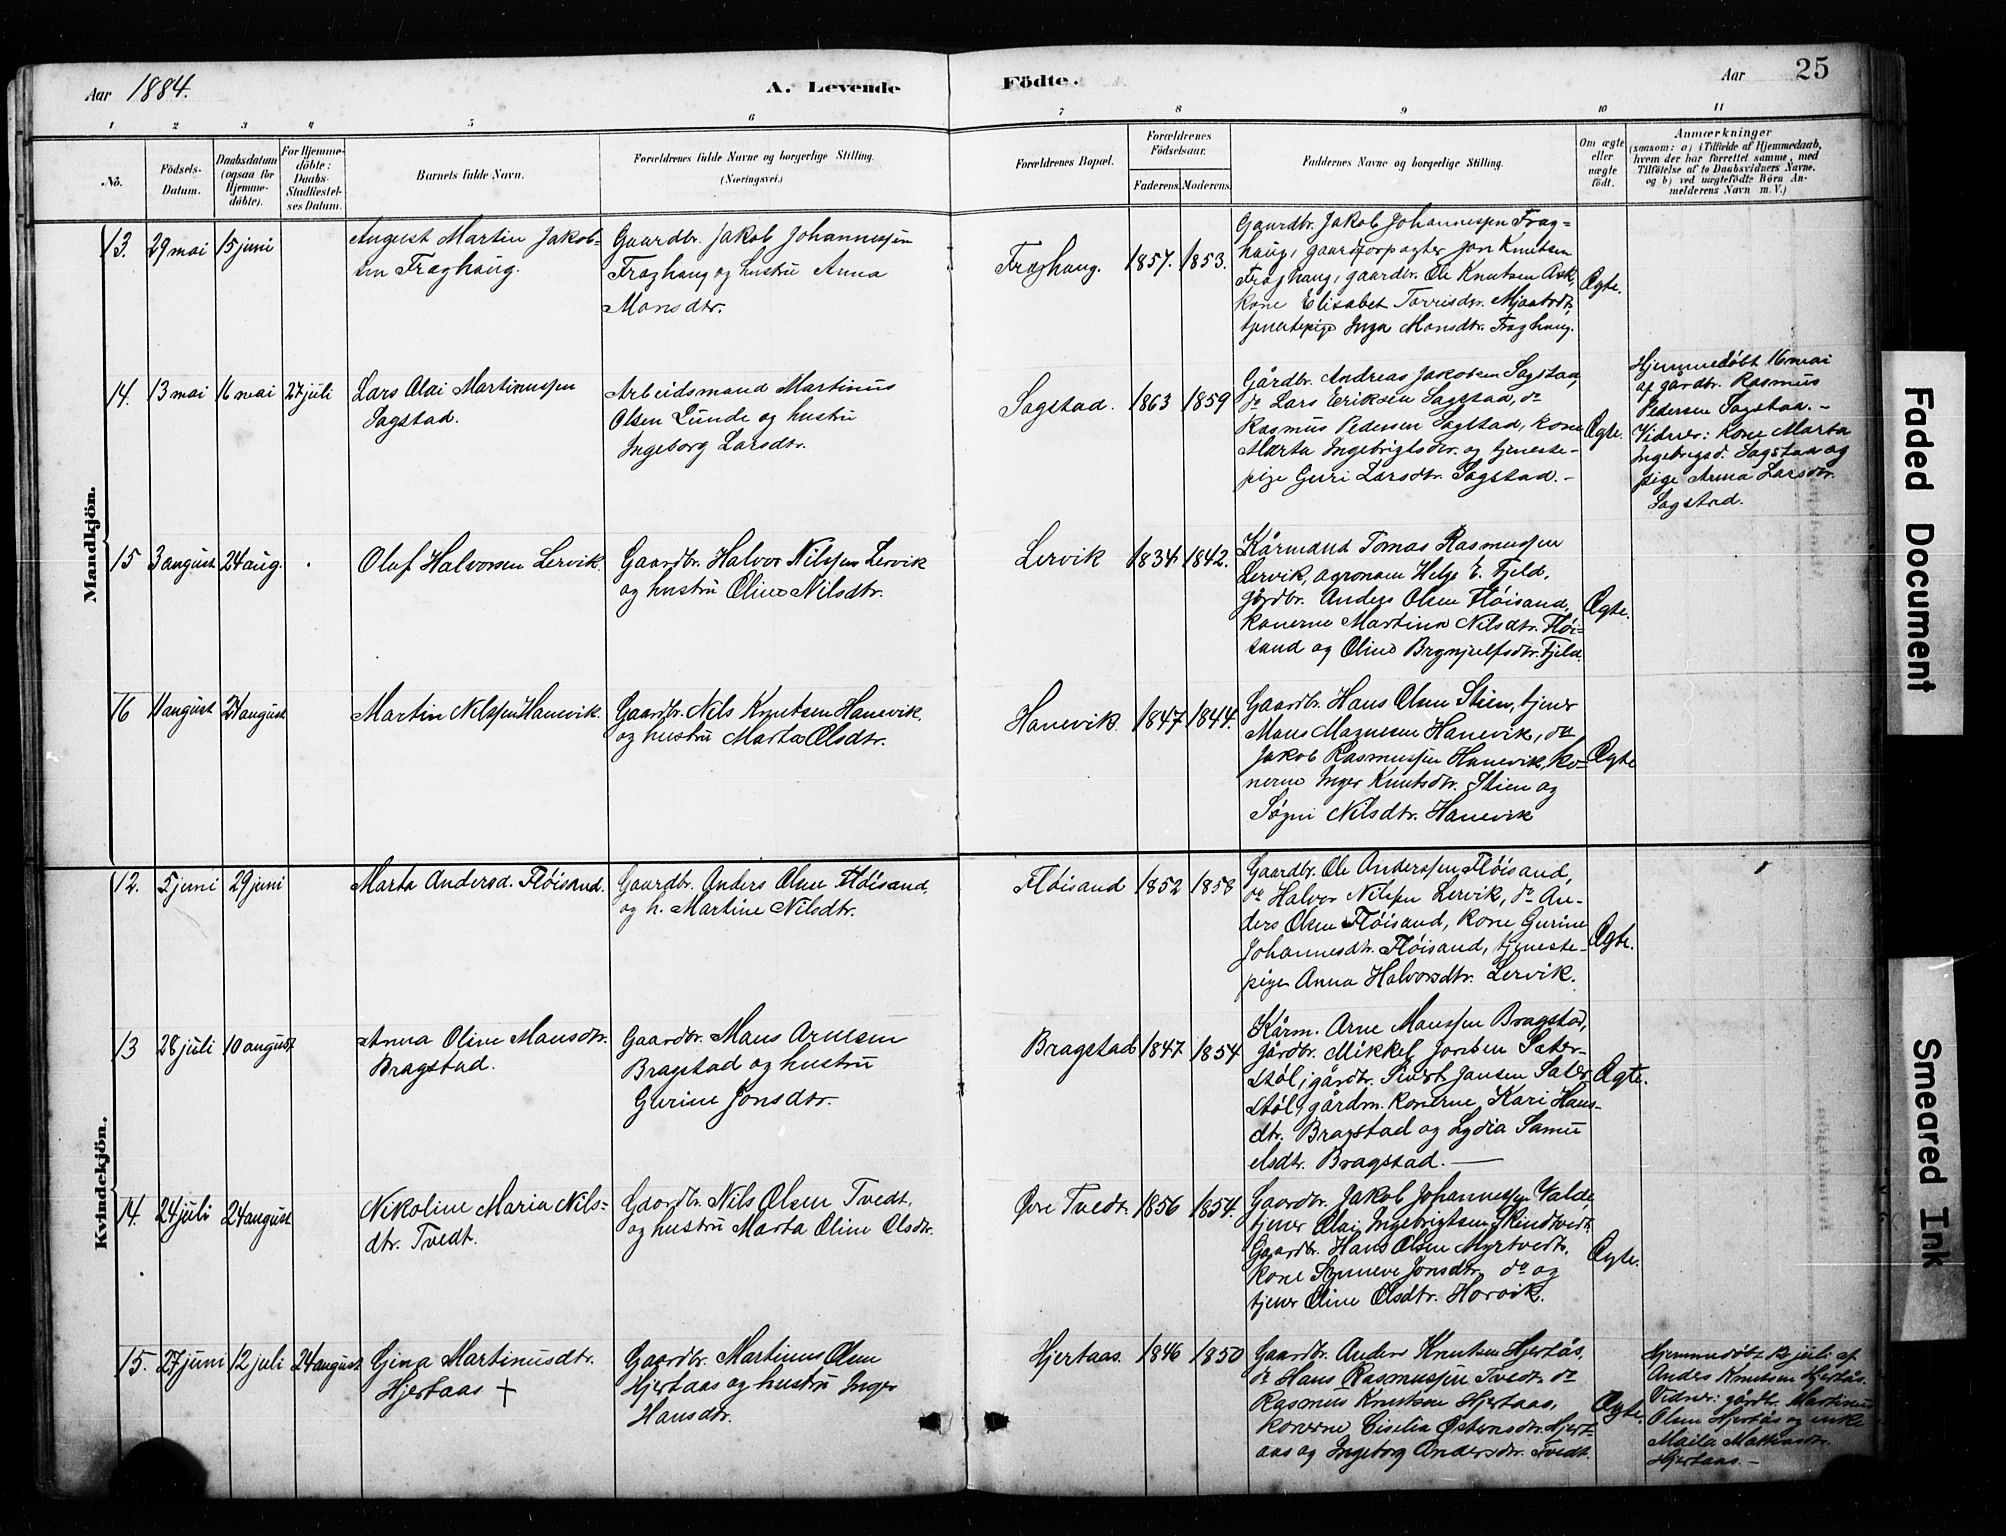 Aar 1884.
A. Levende
Födte.
Aar
25
1
2
3
4
5
6
7
8
9
10
11
No.
Födsels-
Datum.
Daabsdatum
(ogsaa for
Hjemme-
döbte).
For Hjemme-
döbte:
Daabs-
Stadfæstel-
ses Datum.
Barnets fulde Navn.
Forældrenes fulde Navne og borgerlige Stilling.
(Næringsvei.)
Forældrenes Bopæl.
Forældrenes
Födselsaar.
Faderens.
Moderens.
Faddernes Navne og borgerlige Stilling.
Om ægte
eller
uægte
födt.
Anmærkninger
(saasom: a) i Tilfælde af Hjemmedaab,
hvem der har forrettet samme, med
Tilföielse af to Daabsvidners Navne.
og b) ved uægtefödte Börn An-
melderens Navn m. V.)
Mandkjön.
13.
29 mai
15 juni
August Martin Jakob-
sen Fraghaug.
Gaardbr. Jakob Johannessen
Fraghaug og hustru Anna
Monsdtr.
Fraghaug.
1857.
1853.
Gaardbr. Jakob Johannessen Frag-
haug, gaardforpagter Jon Knutsen
Fraghaug, gaardbr. Ole Knutsen Ask,
kone Elisabet Torrisdtr. Mjaatvedt,
tjenestepige Inga Monsdtr. Fraghaug.
Ægte.
14.
13 mai
16 mai
27 juli
Lars Olai Martinussen
Sagstad.
Arbeidsmand Martinus
Olsen Lunde og hustru
Ingeborg Larsdtr.
Sagstad.
1863
1859
Gårdbr. Andreas Jakobsen Sagstad,
do Lars Eriksen Sagstad, do
Rasmus Pedersen Sagstad, kone
Marta Ingebrigtsdtr. og tjeneste-
pige Guri Larsdtr. Sagstad. -
Ægte.
Hjemmedöbt 16 mai
af gårdbr. Rasmus
Pedersen Sagstad. -
Vidner: kone Marta
Ingebrigsd. Sagstad og
pige Anna Larsdtr.
Sagstad.
15
3 august
24 aug.
Oluf Halvorsen Lervik.
Gaardbr. Halvor Nilssen Lervik
og hustru Oline Nilsdtr.
Lervik
1834
1842.
Kårmand Tomas Rasmussen
Lervik, agronom Helge E. Fjeld,
gårdbr. Anders Olsen Flöisand,
konerne Martina Nilsdtr. Flöi-
sand og Oline Brynjulfsdtr. Fjeld.
Ægte.
16
11 august
24 august
Martin Nilssen Hanevik.
Gaardbr. Nils Knutsen Hanevik,
og hustru Marta Olsdtr.
Hanevik.
1847
1844.
Gaardbr. Hans Olsen Stien, tjener
Mons Magnesen Hanevik, do
Jakob Rasmussen Hanevik, ko-
nerne Inger Knutsdtr. Stien og
Søgni Nilsdtr. Hanevik
Ægte
Kvindekjön.
12.
5 juni
29 juni
Marta Andersd. Flöisand.
Gaardbr. Anders Olsen Flöisand,
og h. Martine Nilsdtr.
Flöisand
1852
1858
Gaardbr. Ole Anderssen Flöisand,
do Halvor Nilssen Lervik, do An-
ders Olsen Flöisand, kone Gurine
Johannesdtr. Flöisand, tjeneste-
pige Anna Halvorsdtr. Lervik.
Ægte.
13
28 juli
10 august
Anna Oline Monsdtr.
Bragstad.
Gaardbr. Mons Arnesen
Bragstad og hustru
Gurine Jonsdtr.
Bragstad
1847
1854
Kårm. Arne Monssen Bragstad,
gårdbr. Mikkel Jonsen Sæter-
stöl, gårdbr. Sivert Jansen Sæter-
stöl, gårdm. konerne, Kari Hans-
dtr. Bragstad og Lydia Samu
elsdtr. Bragstad. —
Ægte.
14.
24 juli
24 august
Nikoline Maria Nils-
dtr. Tvedt.
Gaardbr. Nils Olsen Tvedt,
og hustru Marta Oline Olsdtr.
Øvre Tvedt.
1856
1854.
Gaardbr. Jakob Johannessen Valde,
tjener Olai Ingebrigtsen Rindtvedt,
Gaardbr. Hans Olsen Myrtvedt,
kone Synneve Jonsdtr. do og
tjener Oline Olsdtr. Horvik.
Ægte.
15.
27 juni
12 juli
24 august
Gina Martinusdtr.
Hjertaas +
Gaardbr. Martinus Olsen
Hjertaas og hustru Inger
Hansdtr.
Hjertaas.
1846
1850
Gaardbr. Anders Knutsen Hjertås,
do Hans Rasmussen Tvedt, do
Rasmus Knutsen Hjertaas,
konerne Cisilia Østensdtr. Hjert-
aas og Ingeborg Andersdtr. Tvedt.
Ægte.
Hjemmedöbt 12 juli af
Anders Knutsen Hjertås.
Vidner: gårdbr. Martinus
Olsen Hjertås og enke
Mattisdtr.
Hjertaas. -
Faded Document
Smeared Ink